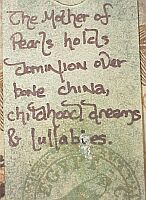 The Mother of
Pearls holds
dominion over
bone china,
childhood dreams
& lullabies.